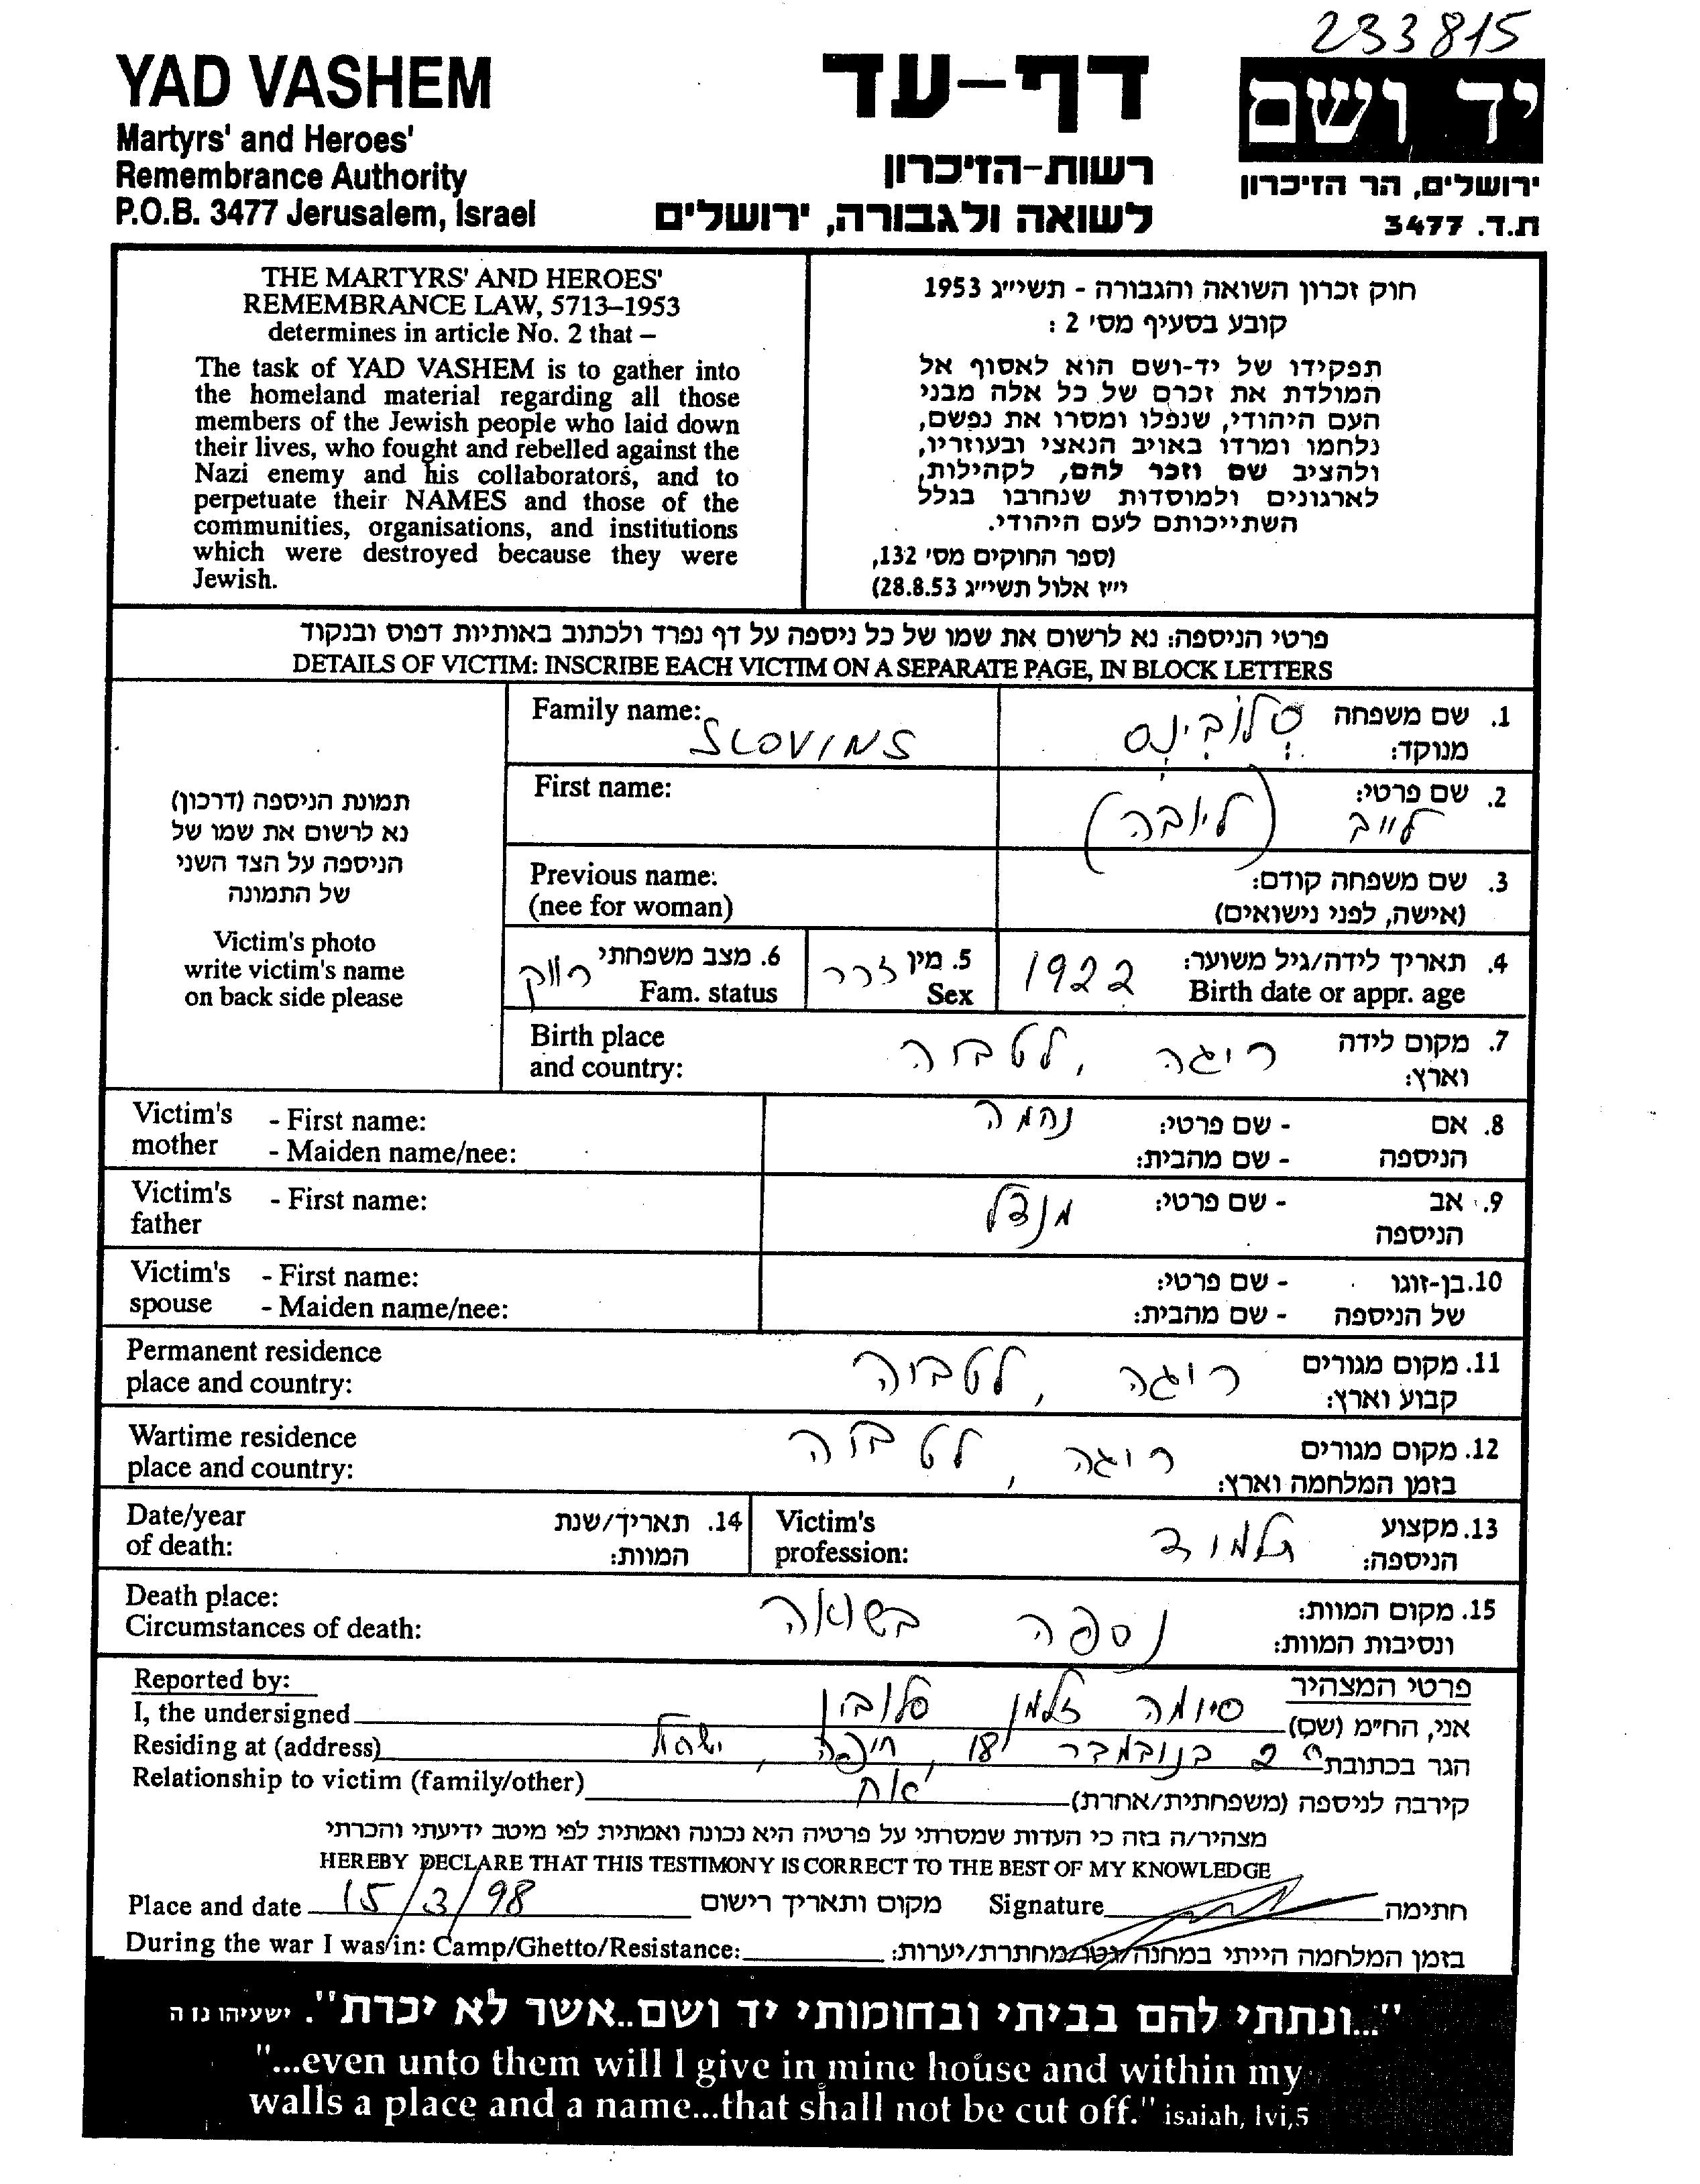 233815
YAD VASHEM
Martyrs' and Heroes'
Remembrance Authority
P.O.B. 3477 Jerusalem, Israel
דף-עד
רשות-הזיכרון
לשואה ולגבורה, ירושלים
יד ושם
ירושלים, הר הזיכרון
ת.ד. 3477
THE MARTYRS' AND HEROES'
REMEMBRANCE LAW, 5713–1953
determines in article No. 2 that –
The task of YAD VASHEM is to gather into
the homeland material regarding all those
members of the Jewish people who laid down
their lives, who fought and rebelled against the
Nazi enemy and his collaborators, and to
perpetuate their NAMES and those of the
communities, organisations, and institutions
which were destroyed because they were
Jewish.
חוק זכרון השואה והגבורה - תשי״ג 1953
קובע בסעיף מס׳ 2 :
תפקידו של יד-ושם הוא לאסוף אל
המולדת את זכרם של כל אלה מבני
העם היהודי, שנפלו ומסרו את נפשם,
נלחמו ומרדו באויב הנאצי ובעוזריו,
ולהציב שם וזכר להם, לקהילות,
לארגונים ולמוסדות שנחרבו בגלל
השתייכותם לעם היהודי.
(ספר החוקים מס׳ 132,
י״ז אלול תשי״ג 28.8.53)
פרטי הניספה: נא לרשום את שמו של כל ניספה על דף נפרד ולכתוב באותיות דפוס ובנקוד
DETAILS OF VICTIM: INSCRIBE EACH VICTIM ON A SEPARATE PAGE, IN BLOCK LETTERS
תמונת הניספה (דרכון)
נא לרשום את שמו של
הניספה על הצד השני
של התמונה
Victim's photo
write victim's name
on back side please
Family name: SLOVINS
1. שם משפחה מנוקד: סלובינס
First name:
2. שם פרטי: לייב (ליובה)
Previous name:
(nee for woman)
3. שם משפחה קודם:
(אישה, לפני נישואים)
4. תאריך לידה/גיל משוער: 1922
Birth date or appr. age
5. מין זכר
Sex
6. מצב משפחתי רווק
Fam. status
Birth place
and country:
7. מקום לידה וארץ: ריגה, לטביה
Victim's mother - First name:
- Maiden name/nee:
8. אם הניספה - שם פרטי: נחמה
- שם מהבית:
Victim's father - First name:
9. אב הניספה - שם פרטי: מנדל
Victim's spouse - First name:
- Maiden name/nee:
10. בן-זוגו של הניספה - שם פרטי:
- שם מהבית:
Permanent residence
place and country:
11. מקום מגורים קבוע וארץ: ריגה, לטביה
Wartime residence
place and country:
12. מקום מגורים בזמן המלחמה וארץ: ריגה, לטביה
Date/year
of death:
14. תאריך/שנת המוות:
Victim's
profession:
13. מקצוע הניספה: תלמיד
Death place:
Circumstances of death:
15. מקום המוות: ונסיבות המוות: נספה בשואה
Reported by:
פרטי המצהיר
I, the undersigned סיומה זלמן סלובין אני, הח״מ (שם)
Residing at (address) כ״ט בנובמבר 18, חיפה, ישראל הגר בכתובת
Relationship to victim (family/other) אח קירבה לניספה (משפחתית/אחרת)
מצהיר/ה בזה כי העדות שמסרתי על פרטיה היא נכונה ואמתית לפי מיטב ידיעתי והכרתי
HEREBY DECLARE THAT THIS TESTIMONY IS CORRECT TO THE BEST OF MY KNOWLEDGE
Place and date 15/3/98 מקום ותאריך רישום Signature חתימה
During the war I was in: Camp/Ghetto/Resistance: בזמן המלחמה הייתי במחנה/גטו/מחתרת/יערות:
"...ונתתי להם בביתי ובחומותי יד ושם..אשר לא יכרת". ישעיהו נו ה
"...even unto them will I give in mine house and within my
walls a place and a name...that shall not be cut off." isaiah, lvi,5